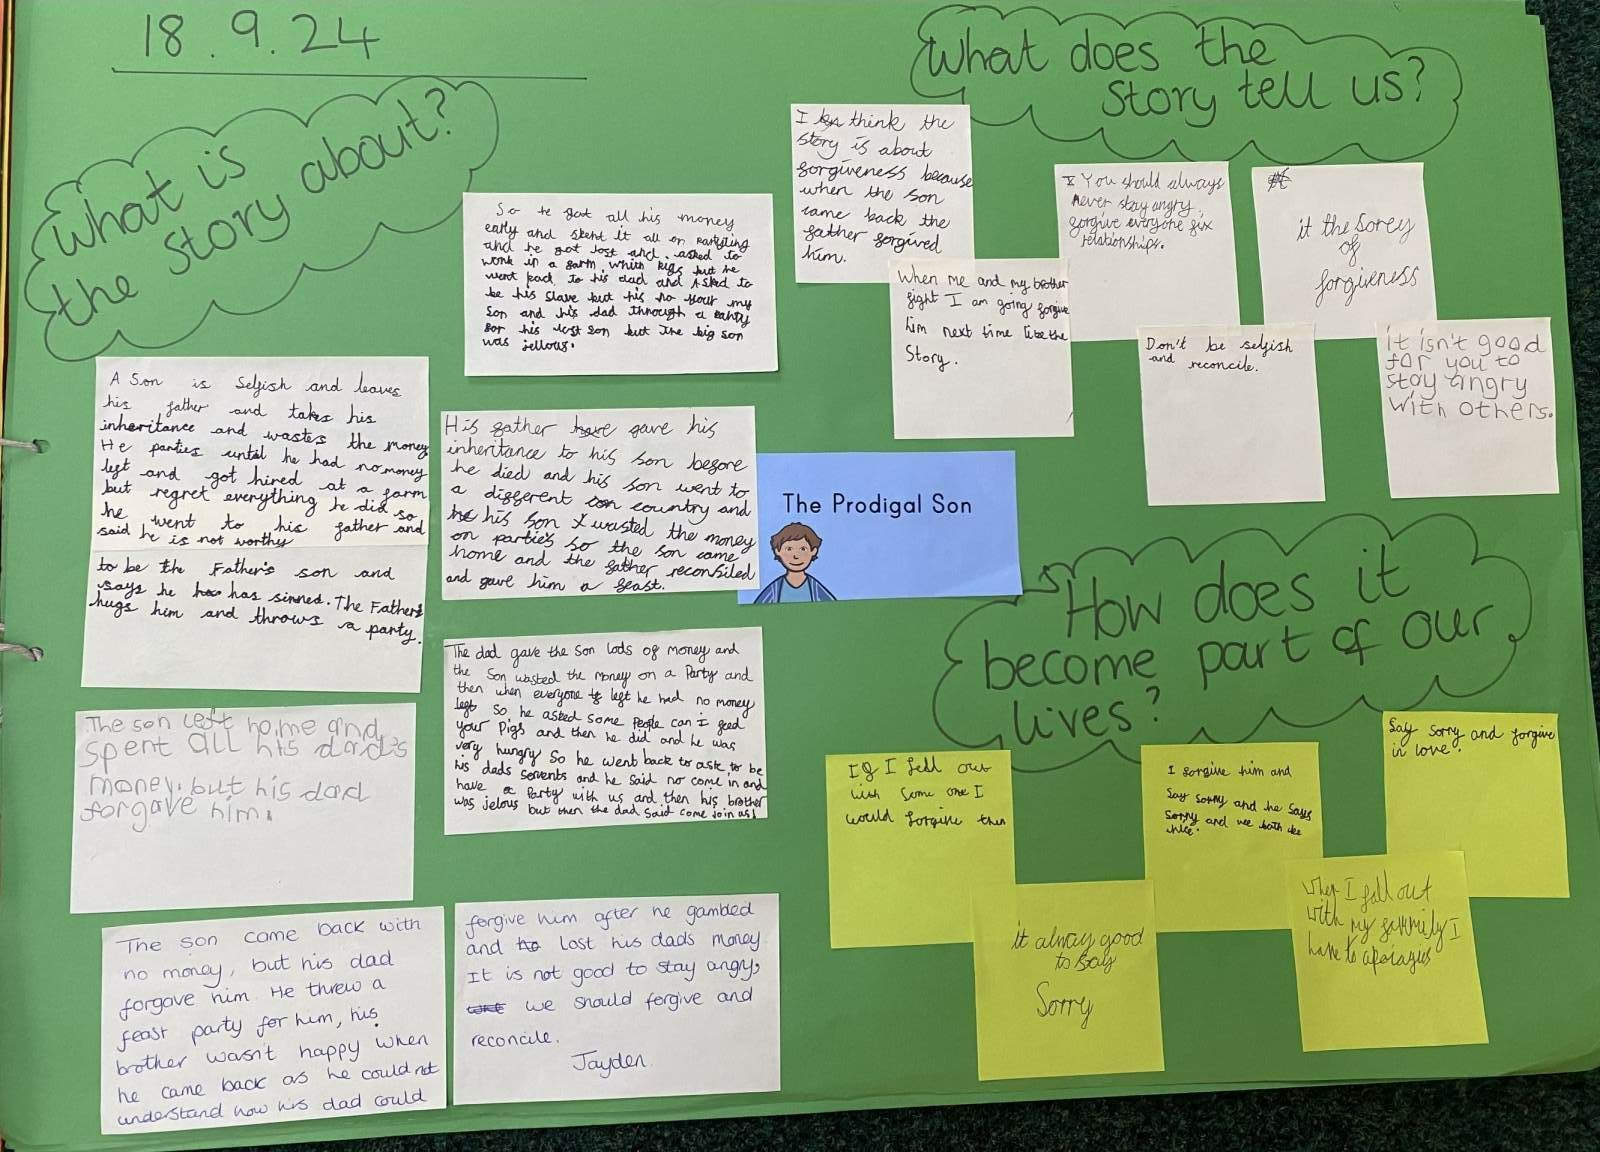 18.9.24
What is
the story about?
So he got all his money
early and spent it all on partying
and he got lost and asked to
work in a farm which pigs but he
went back to his dad and Asked to
be his slave but his no your my
Son and his dad through a party
for his lost son but the big son
was jellous.
A Son is Selfish and leaves
his father and takes his
inheritance and wastes the money
He parties until he had no money
left and got hired at a farm
but regret everything he did so
he went to his father and
said he is not worthy
to be the Father's son and
says he has sinned. The Fathers
hugs him and throws a party.
His father gave his
inheritance to his son before
he died and his son went to
a different country and
his son wasted the money
on parties so the son came
home and the father reconsiled
and gave him a feast.
The dad gave the Son lods of money and
the Son wasted the money on a Party and
then when everyone left he had no money
left So he asked some People can i feed
your Pigs and then he did and he was
very hungry So he went back to ask to be
his dads servents and he said no come in and
have a Party with us and then his brother
was jelous but then the dad Said come join as!
The son left home and
spent all his dad's
money. but his dad
forgave him.
The son came back with
no money, but his dad
forgave him. He threw a
feast party for him, his
brother wasn't happy when
he came back as he could not
understand how his dad could
forgive him after he gambed
and lost his dads money
It is not good to stay angry,
we should forgive and
reconcile.
Jayden.
The Prodigal Son
What does the
Story tell us?
I think the
story is about
forgiveness because
when the son
came back the
father forgived
him.
When me and my brother
fight I am going forgive
him next time like the
Story.
You should always
never stay angry
forgive everyone fix
relationships.
it the sorey
of
forgiveness
Don't be selfish
and reconcile.
it isn't good
for you to
stay angry
with others.
How does it
become part of our
lives?
If I fell out
with some one I
would forgive them
it alway good
to say
Sorry
I forgive him and
Say sorry and he says
Sorry and we both are
nice.
Say sorry and forgive
in love.
when I fall out
with my fammily I
have to apolagies